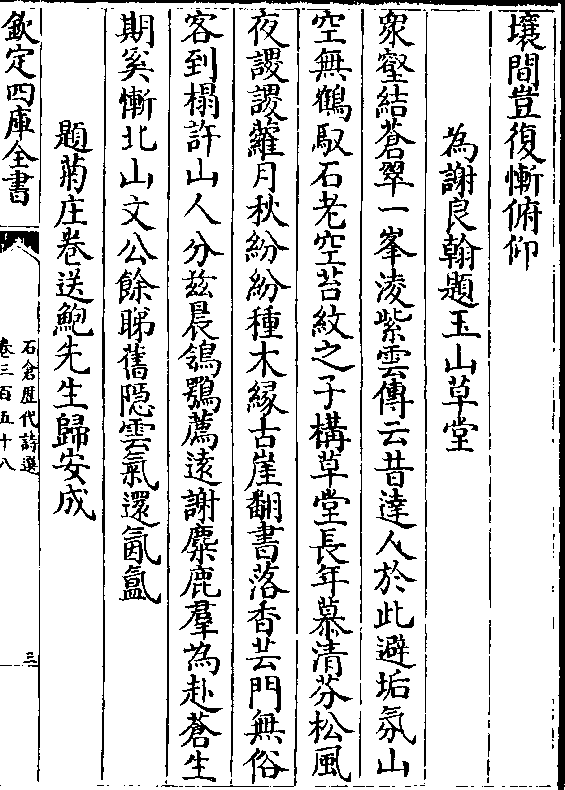 壤間豈復慚俯仰
為謝良翰題玉山草堂
衆壑結蒼翠一峯凌紫雲傳云昔達人於此避垢氛山
空無鶴馭石老空苔紋之子構草堂長年慕清芬松風
夜謖謖蘿月秋紛紛種木緣古崖翻書落香芸門無俗
客到榻許山人分兹晨鴿鶚薦遠謝麋鹿羣為赴蒼生
期奚慚北山文公餘睇舊隠雲氣還氤氲
題菊庄卷送鮑先生歸安成
欽定四庫全書
石倉歴代詩選
卷三百五十八
三